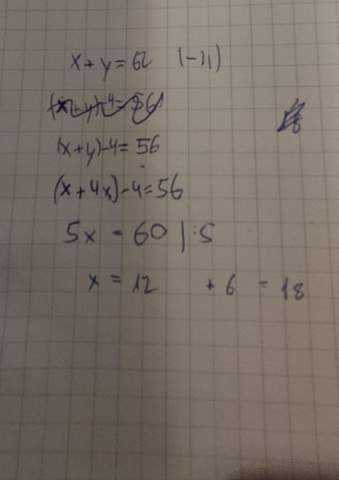 x + y = 62
(x+y)-4= 56
(x+4x)-4=56
5x = 60 | :5
x = 12 + 6 = 18